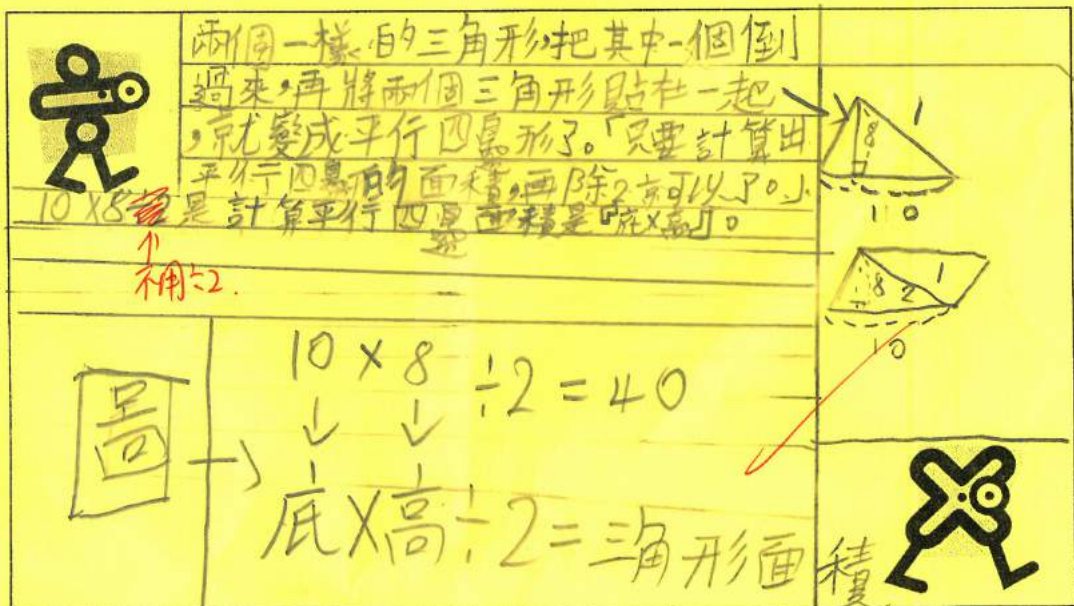 兩個一樣的三角形,把其中一個倒
過來,再將兩個三角形貼在一起
,就變成平行四邊形了。「只要計算出
平行四邊的面積,再除2就可以了。」
10×8 是計算平行四邊面積是『底×高』。
不用÷2.
8
1
10
8 2 1
10
圖
10×8÷2=40
底×高÷2=三角形面積